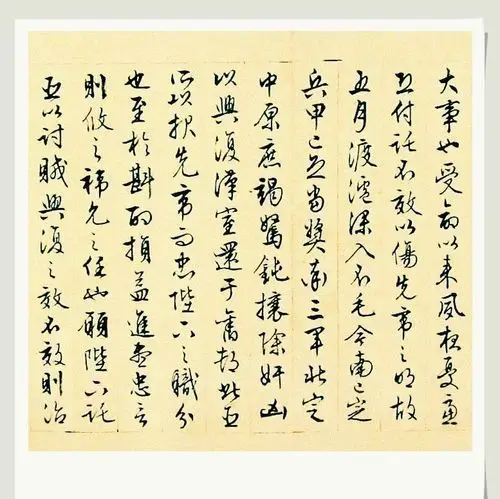 大事也受命以来夙夜憂慮
恐付託不效以傷先帝之明故
五月渡瀘深入不毛今南已定
兵甲已足當獎率三軍北定
中原庶竭駑鈍攘除奸凶
以興復漢室還于舊都此臣
所以报先帝而忠陛下之職分
也至於斟酌損益進盡忠言
則攸之禕允之任也願陛下託
臣以討賊興復之效不效則治